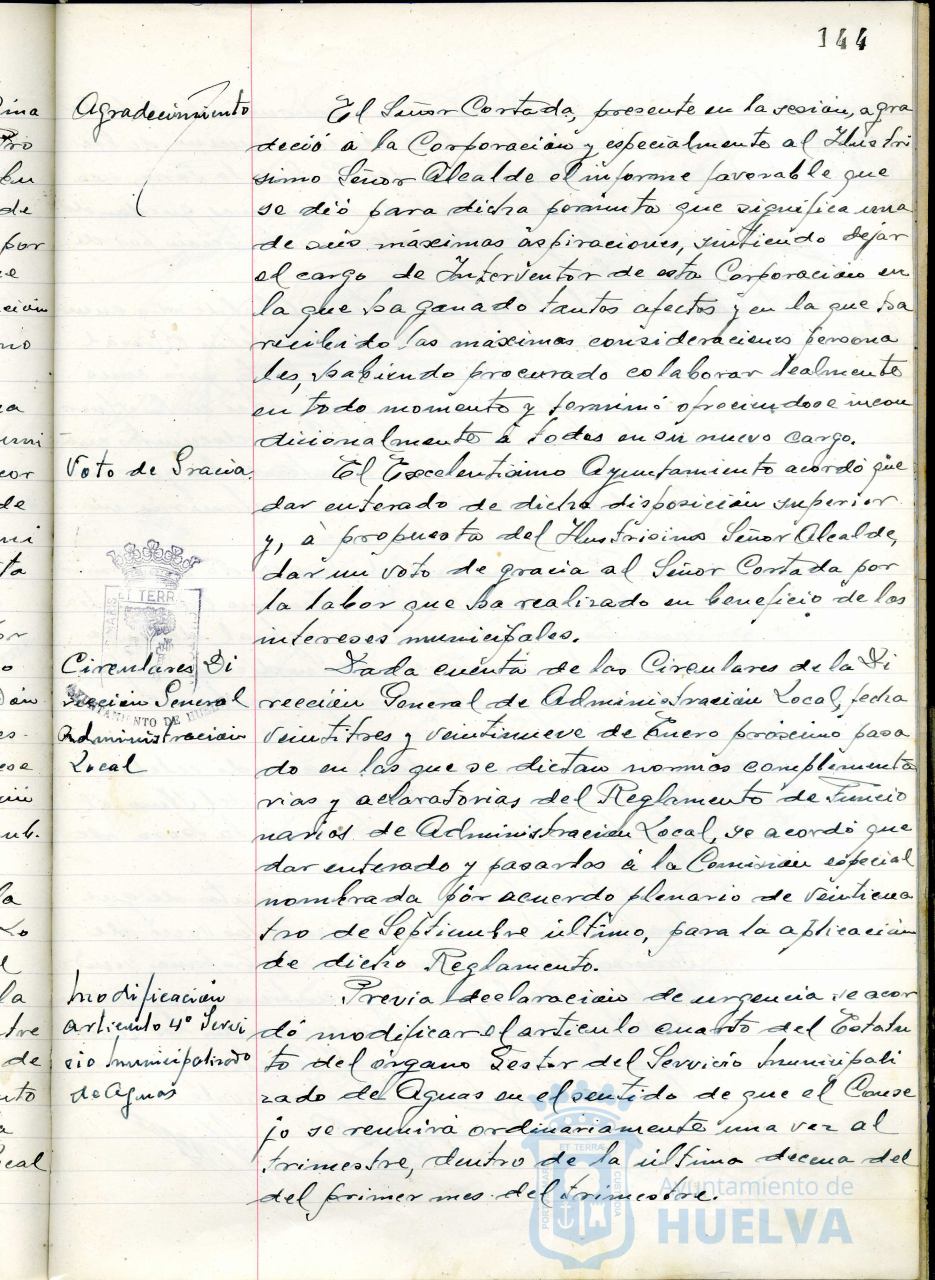 144
Agradecimiento
El Señor Cortada, presente en la sesión, agra
deció à la Corporación y especialmente al Ilustri
simo Señor Alcalde el informe favorable que
se dió para dicha permuta que significa una
de sus máximas aspiraciones, sintiendo dejar
el cargo de Interventor de esta Corporación en
la que ha ganado tantos afectos y en la que ha
recibido las máximas consideraciones persona
les, habiendo procurado colaborar lealmente
en todo momento y terminó ofreciendose incon
dicionalmente à todos en su nuevo cargo.
Voto de Gracia
El Excelentísimo Ayuntamiento acordó que
dar enterado de dicha disposición superior
y, à propuesta del Ilustrisimo Señor Alcalde,
dar un voto de gracia al Señor Cortada por
la labor que ha realizado en beneficio de los
intereses municipales.
Circulares Di
rección General
Administración
Local
Dada cuenta de las Circulares de la Di
rección General de Administración Local, fecha
veintitres y veintinueve de Enero próximo pasa
do en las que se dictan normas complementa
rias y aclaratorias del Reglamento de Funcio
narios de Administración Local, se acordó que
dar enterado y pasarlas à la Comisión especial
nombrada por acuerdo plenario de veinticua
tro de Septiembre último, para la aplicación
de dicho Reglamento.
Modificación
articulo 4º Servi
cio Municipalizado
de Aguas
Previa declaración de urgencia se acor
dó modificar el articulo cuarto del Estatu
to del órgano Gestor del Servicio Municipali
zado de Aguas en el sentido de que el Conse
jo se reunirá ordinariamente una vez al
trimestre, dentro de la última decena del
del primer mes del trimestre.
ET TERRÆ
AYUNTAMIENTO DE HUELVA
PORTUS MARIS ET TERRÆ CUSTODIA
Ayuntamiento de
HUELVA